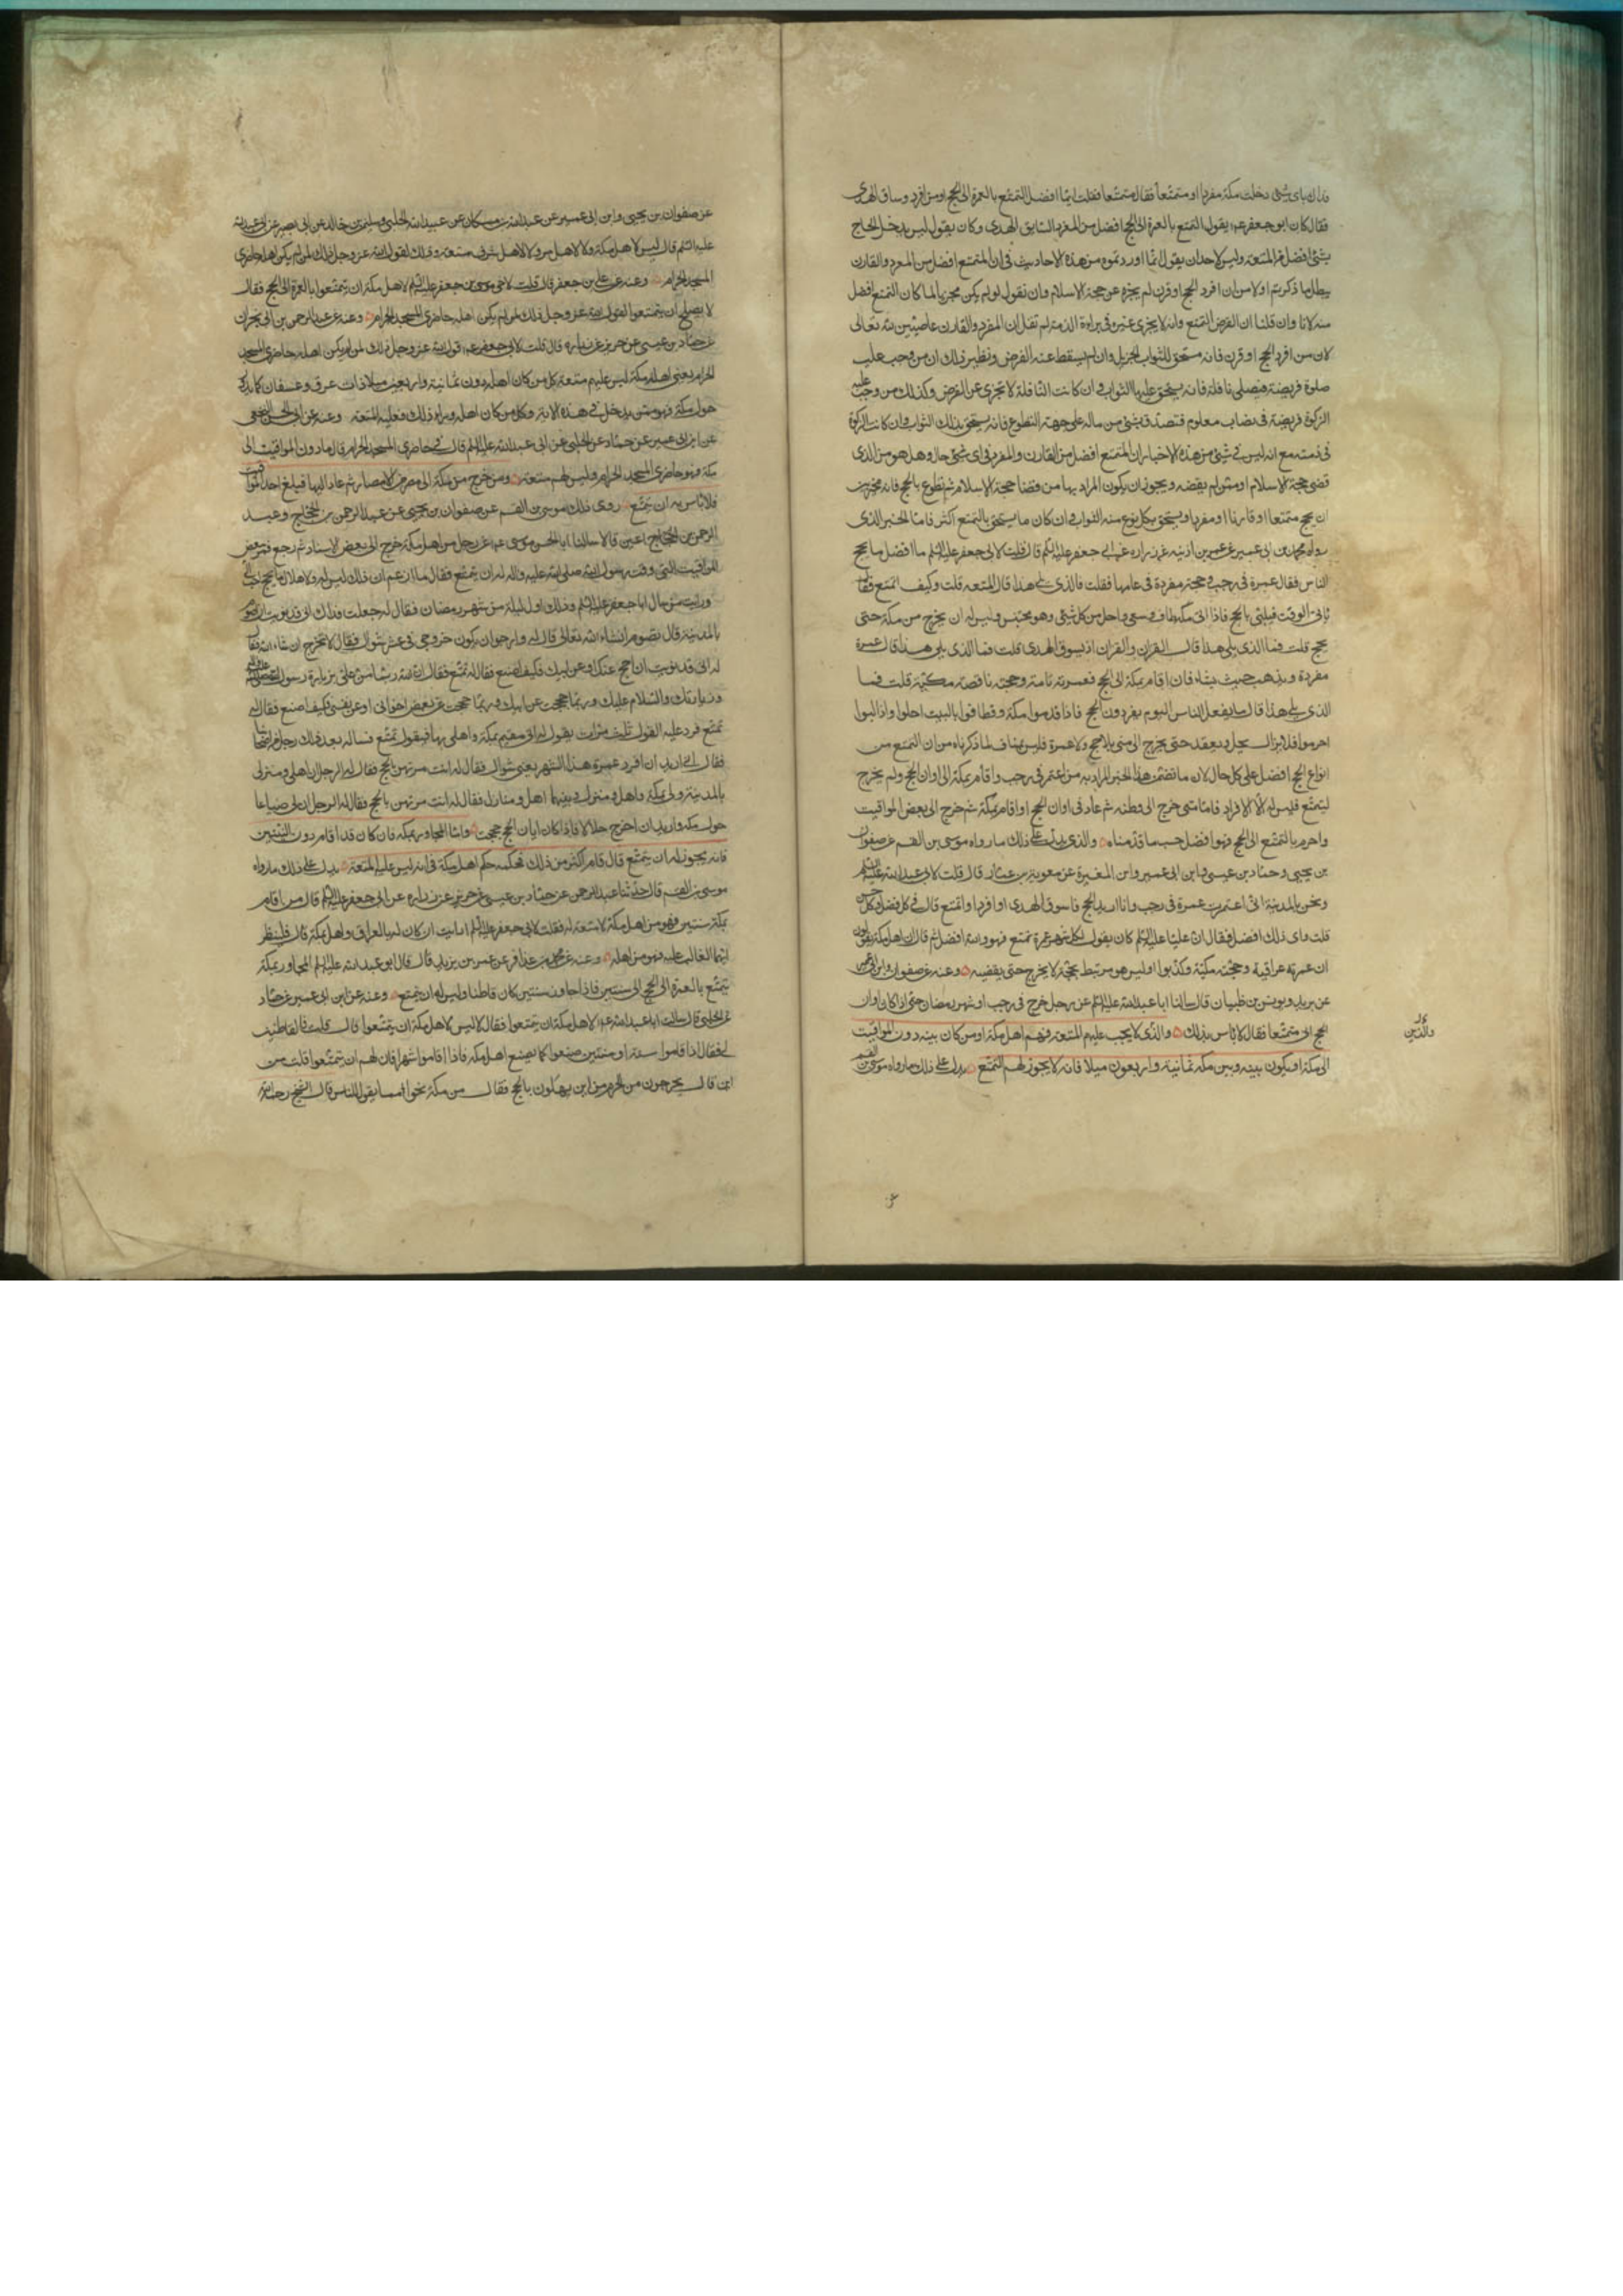 فداك باى شئ دخلت مكة مفردا او متمتعا فقال متمتعا فقلت ايما افضل التمتع بالعمرة الى الحج او من افرد وساق الهدى
فقال كان ابو جعفر عم يقول التمتع بالعمرة الى الحج افضل من المفرد السايق الهدى وكان يقول ليس يدخل الحاج
بشئ افضل من المتعة وليس لاحد ان يقول انما اوردتموه من هذه الاحاديث فى ان المتمتع افضل من المفرد والقارن
يبطل ما ذكرتم اولا من ان افرد الحج او قرن لم يجزه عن حجة الاسلام وان نقول لو لم يكن مجزيا لما كان التمتع افضل
منه لانا وان قلنا ان الفرض التمتع وانه لا يجزى غيره فى براءة الذمة لم نقل ان المفرد والقارن عاصيين لله تعالى
لان من افرد الحج او قرن فانه مستحق للثواب الجزيل وان لم يسقط عنه الفرض ونظير ذلك ان من وجب عليه
صلوة فريضة فيصلى نافلة فانه يستحق عليها الثواب وان كانت النافلة لا تجزى عن الفرض وكذلك من وجب عليه
الزكوة فريضة فى نصاب معلوم فتصدق بشئ من ماله على جهة التطوع فانه يستحق بذلك الثواب وان كانت الزكوة
فى ذمته مع انه ليس فى شئ من هذه الاخبار ان المتمتع افضل من القارن والمفرد فى اى شئ حال وهل هو من الذى
قضى حجة الاسلام او ممن لم يقضه ويجوز ان يكون المراد بها من قضا حجة الاسلام ثم تطوع بالحج فانه مخير بين
ان يحج متمتعا او قارنا او مفردا ويستحق بكل نوع منه الثواب وان كان ما يستحق بالتمتع اكثر فاما الخبر الذى
رواه محمد بن ابى عمير عن عمر بن اذينة عن زرارة عن ابى جعفر عليه السلم قال قلت لابى جعفر عليه السلم ما افضل ما يحج
الناس فقال عمرة فى رجب وحجة مفردة فى عامها فقلت فالذى يلى هذا قال المتعة قلت وكيف اتمتع فقال
ياتى الوقت فيلبى بالحج فاذا اتى مكة طاف وسعى واحل من كل شئ وهو محتبس وليس له ان يخرج من مكة حتى
يحج قلت فما الذى يلى هذا قال القران والقران ان يسوق الهدى قلت فما الذى يلى هذا قال عمرة
مفردة ويذهب حيث يشاء فان اقام بمكة الى الحج فعمرته تامة وحجته ناقصة مكية قلت فما
الذى يلى هذا قال ما يفعل الناس اليوم يفردون الحج فاذا قدموا مكة وطافوا بالبيت احلوا واذا لبوا
احرموا فلا يزال يحل ويعقد حتى يخرج الى منى بلا حج ولا عمرة فليس بمناف لما ذكرناه من ان التمتع من
انواع الحج افضل على كل حال لان ما تضمن هذا الخبر المراد به من اعتمر فى رجب واقام بمكة الى اوان الحج ولم يخرج
ليتمتع فليس له الا الافراد فاما متى خرج الى وطنه ثم عاد فى اوان الحج او اقام بمكة ثم خرج الى بعض المواقيت
واحرم بالتمتع الى الحج فهو افضل حسب ما قدمناه والذى يدل على ذلك ما رواه موسى بن القسم عن صفوان
بن يحيى وحماد بن عيسى وابن ابى عمير وابن المغيرة عن معوية بن عمار قال قلت لابى عبد الله عليه السلم
ونحن بالمدينة انى اعتمرت عمرة فى رجب وانا اريد الحج فاسوق الهدى او افرد او اتمتع قال فى كل فضل وكل حسن
قلت واى ذلك افضل فقال ان عليا عليه السلم كان يقول لكل شهر عمرة تمتع فهو والله افضل ثم قال ان اهل مكة يقولون
ان عمرته عراقية وحجته مكية وكذبوا او ليس هو مرتبط بحجته لا يخرج حتى يقضيه وعنه عن صفوان وابن ابى عمير
عن بريد ويونس بن ظبيان قال سالنا ابا عبد الله عليه السلم عن رجل خرج فى رجب او شهر رمضان حتى اذا كان اوان
الحج اتى متمتعا فقال لا باس بذلك والذى لا يجب عليهم المتعة فهم اهل مكة او من كان بيته دون المواقيت
الى مكة او يكون بينه وبين مكة ثمانية واربعون ميلا فانه لا يجوز لهم التمتع يدل على ذلك ما رواه موسى بن القسم
والذين
عن
عن صفوان بن يحيى وابن ابى عمير عن عبد الله بن مسكان عن عبيد الله الحلبى وسليمن بن خالد عن ابى بصير عن ابى عبد الله
عليه السلم قال ليس لاهل مكة ولا لاهل مر ولا لاهل سرف متعة وذلك لقول الله عز وجل ذلك لمن لم يكن اهله حاضرى
المسجد الحرام وعنه عن على بن جعفر قال قلت لاخى موسى بن جعفر عليه السلم لاهل مكة ان يتمتعوا بالعمرة الى الحج فقال
لا يصلح ان يتمتعوا لقول الله عز وجل ذلك لمن لم يكن اهله حاضرى المسجد الحرام وعنه عن عبد الرحمن بن ابى نجران
عن حماد بن عيسى عن حريز عن زرارة قال قلت لابى جعفر عم قول الله عز وجل ذلك لمن لم يكن اهله حاضرى المسجد
الحرام يعنى اهل مكة ليس عليهم متعة كل من كان اهله دون ثمانية واربعين ميلا ذات عرق وعسفان كما يدور
حول مكة فهو ممن يدخل فى هذه الاية وكل من كان اهله وراء ذلك فعليه المتعة وعنه عن ابى الحسن النخعى
عن ابن ابى عمير عن حماد عن الحلبى عن ابى عبد الله عليه السلم قال فى حاضرى المسجد الحرام قال ما دون المواقيت الى
مكة فهو حاضرى المسجد الحرام وليس لهم متعة ومن خرج من مكة الى مصر من الامصار ثم عاد اليها فبلغ احد المواقيت
فلا باس به ان يتمتع روى ذلك موسى بن القسم عن صفوان بن يحيى عن عبد الرحمن بن الحجاج وعبد
الرحمن بن اعين قالا سالنا ابا الحسن موسى عم عن رجل من اهل مكة خرج الى بعض الامصار ثم رجع فمر ببعض
المواقيت التى وقت رسول الله صلى الله عليه واله له ان يتمتع فقال ما ازعم ان ذلك ليس له والاهلال بالحج احب الى
ورايت من سال ابا جعفر عليه السلم وذلك اول ليلة من شهر رمضان فقال له جعلت فداك انى قد نويت ان اصوم
بالمدينة قال تصوم ان شاء الله تعالى قال له وارجو ان يكون خروجى فى عشر شوال فقال تخرج ان شاء الله فقال
له انى قد نويت ان احج عنك او عن ابيك فكيف اصنع فقال له تمتع فقال ان الله ربما من على بزيارة رسول الله صلى الله عليه واله
وزيارتك والسلام عليك وربما حججت عن ابيك وربما حججت عن بعض اخوانى او عن نفسى فكيف اصنع فقال له
تمتع فرد عليه القول ثلث مرات يقول له انى مقيم بمكة واهلى بها فيقول تمتع فساله بعد ذلك رجل من اصحابنا
فقال انى اريد ان افرد عمرة هذا الشهر يعنى شوال فقال له انت مرتهن بالحج فقال له الرجل ان اهلى ومنزلى
بالمدينة ولى بمكة واهل ومنزل وبينهما اهل ومنازل فقال له انت مرتهن بالحج فقال له الرجل ان لى ضياعا
حول مكة واريد ان اخرج حلالا فاذا كان ابان الحج حججت واما المجاور بمكة فان كان قد اقام دون السنتين
فانه يجوز له ان يتمتع قال قام اكثر من ذلك فحكمه حكم اهل مكة فى انه ليس عليه المتعة يدل على ذلك ما رواه
موسى بن القسم قال حدثنا عبد الرحمن عن حماد بن عيسى عن حريز عن زرارة عن ابى جعفر عليه السلم قال من اقام
بمكة سنتين فهو من اهل مكة لا متعة له فقلت لابى جعفر عليه السلم ارايت ان كان له بالعراق واهل بمكة قال فلينظر
ايهما الغالب عليه فهو من اهله وعنه عن محمد بن عذافر عن عمر بن يزيد قال قال ابو عبد الله عليه السلم المجاور بمكة
يتمتع بالعمرة الى الحج الى سنتين فاذا جاوز سنتين كان قاطنا وليس له ان يتمتع وعنه عن ابن ابى عمير عن حماد
عن الحلبى قال سالت ابا عبد الله عم لاهل مكة ان يتمتعوا فقال لا ليس لاهل مكة ان يتمتعوا قال قلت فالقاطنين
بها فقال اذا قاموا سنة او سنتين صنعوا كما يصنع اهل مكة فاذا اقاموا شهرا فان لهم ان يتمتعوا قلت من
اين قال يخرجون من الحرم من اين يهلون بالحج فقال من مكة نحوا مما يقول الناس قال الشيخ رحمه الله